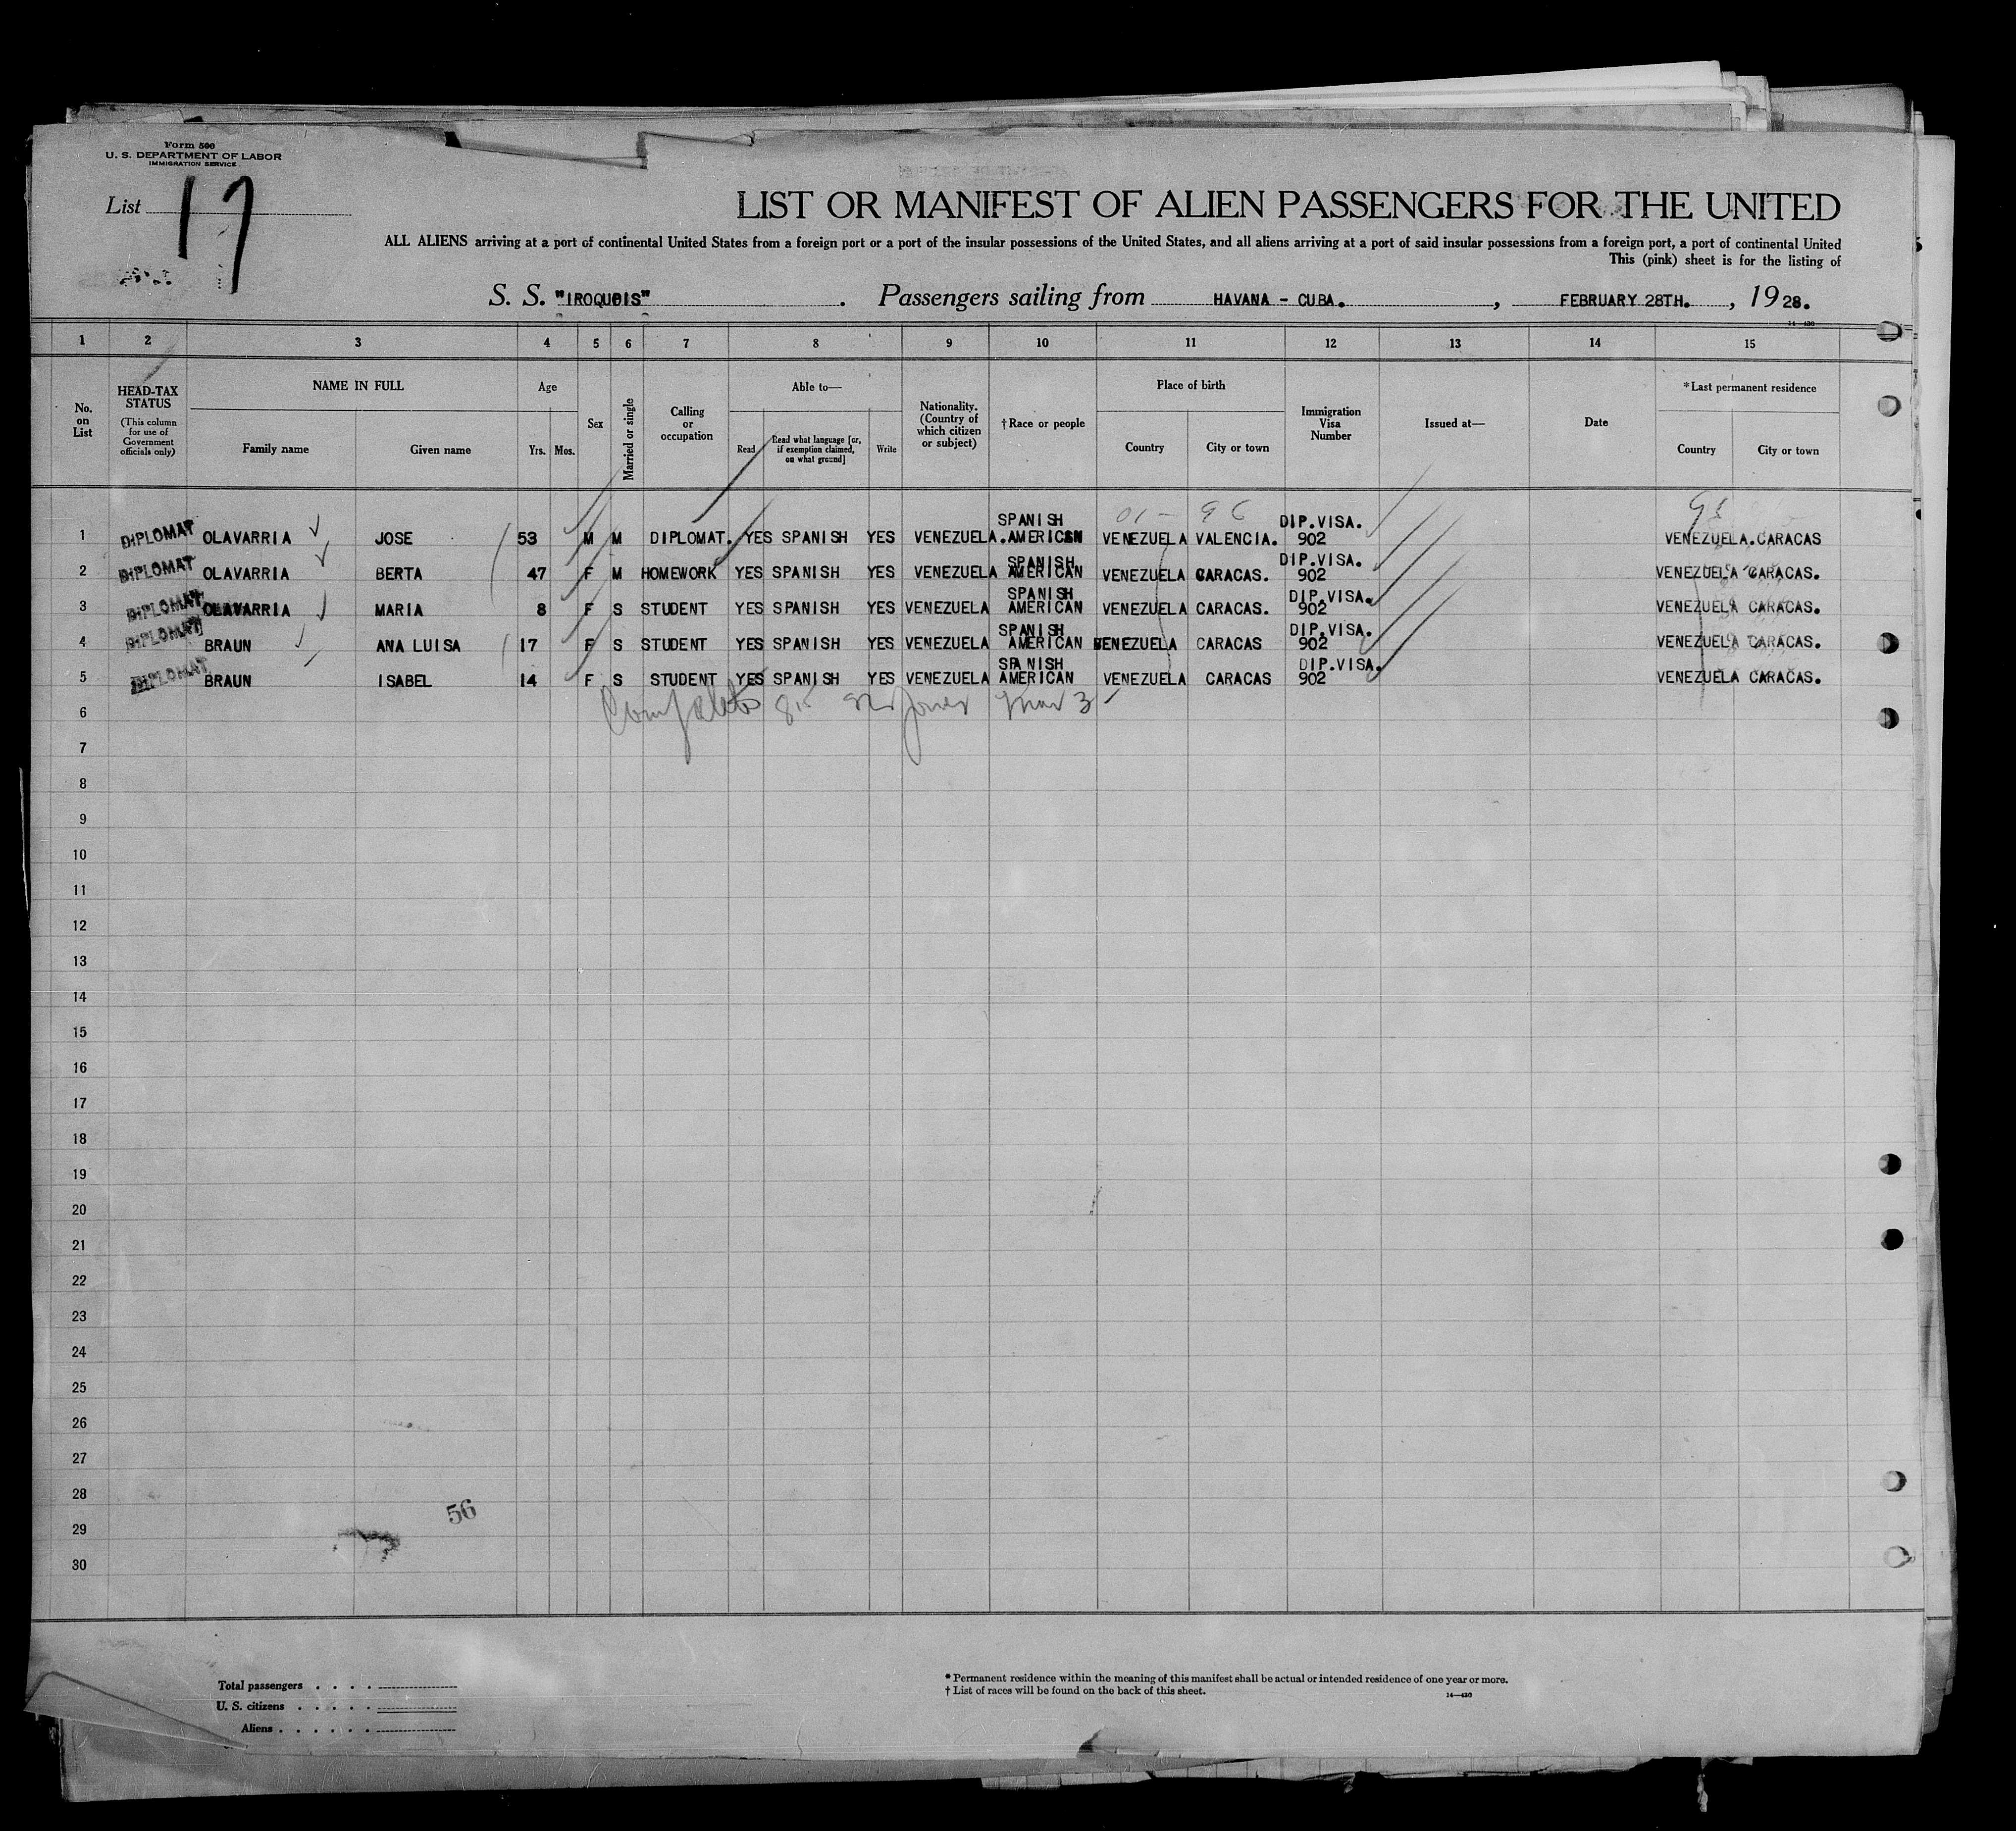 Form 500
U. S. DEPARTMENT OF LABOR
IMMIGRATION SERVICE
List 17
LIST OR MANIFEST OF ALIEN PASSENGERS FOR THE UNITED
ALL ALIENS arriving at a port of continental United States from a foreign port or a port of the insular possessions of the United States, and all aliens arriving at a port of said insular possessions from a foreign port, a port of continental United
This (pink) sheet is for the listing of
S. S. "IROQUOIS" . Passengers sailing from HAVANA - CUBA. , FEBRUARY 28TH. , 1928.
14-430
1 2 3 4 5 6 7 8 9 10 11 12 13 14 15
No. on List
HEAD-TAX STATUS
(This column for use of Government officials only)
NAME IN FULL
Family name Given name
Age
Yrs. Mos.
Sex
Married or single
Calling or occupation
Able to—
Read Read what language [or, if exemption claimed, on what ground] Write
Nationality. (Country of which citizen or subject)
†Race or people
Place of birth
Country City or town
Immigration Visa Number
Issued at—
Date
*Last permanent residence
Country City or town
01- 96
1 DIPLOMAT OLAVARRIA JOSE 53 M M DIPLOMAT. YES SPANISH YES VENEZUELA. SPANISH AMERICSN VENEZUELA VALENCIA. DIP.VISA. 902 VENEZUELA.CARACAS
2 DIPLOMAT OLAVARRIA BERTA 47 F M HOMEWORK YES SPANISH YES VENEZUELA SPANISH AMERICAN VENEZUELA CARACAS. DIP.VISA. 902 VENEZUELA CARACAS.
3 DIPLOMAT OLAVARRIA MARIA 8 F S STUDENT YES SPANISH YES VENEZUELA SPANISH AMERICAN VENEZUELA CARACAS. DIP.VISA. 902 VENEZUELA CARACAS.
4 DIPLOMAT BRAUN ANA LUISA 17 F S STUDENT YES SPANISH YES VENEZUELA SPANISH AMERICAN VENEZUELA CARACAS DIP.VISA. 902 VENEZUELA CARACAS.
5 DIPLOMAT BRAUN ISABEL 14 F S STUDENT YES SPANISH YES VENEZUELA SPANISH AMERICAN VENEZUELA CARACAS DIP.VISA. 902 VENEZUELA CARACAS.
Complete Jones Mar 3
6
7
8
9
10
11
12
13
14
15
16
17
18
19
20
21
22
23
24
25
26
27
28
56
29
30
Total passengers . . . .
U. S. citizens . . . . .
Aliens . . . . . .
* Permanent residence within the meaning of this manifest shall be actual or intended residence of one year or more.
† List of races will be found on the back of this sheet.
14-430